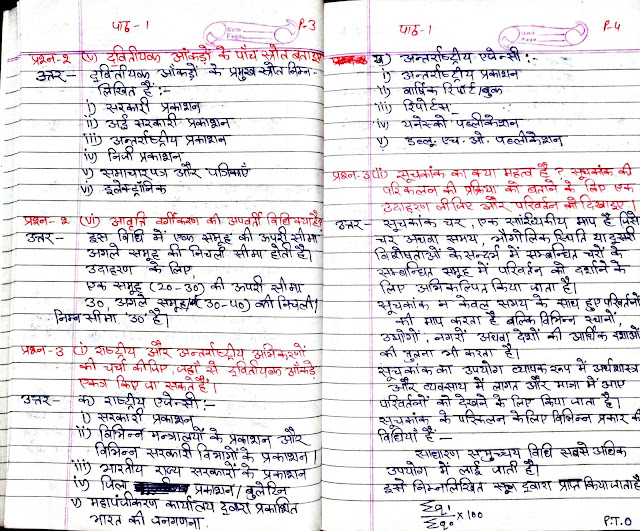 पाठ - 1
P-3
प्रश्न-2 (v) द्वितीयक आंकड़ों के पाँच स्रोत बताइए
उत्तर - द्वितीयक आंकड़ों के प्रमुख स्रोत निम्न-
लिखित हैं :-
i) सरकारी प्रकाशन
ii) अर्द्ध सरकारी प्रकाशन
iii) अन्तर्राष्ट्रीय प्रकाशन
iv) निजी प्रकाशन
v) समाचारपत्र और पत्रिकाएँ
vi) इलेक्ट्रॉनिक
प्रश्न-2 (vi) आवृत्ति वर्गीकरण की अपवर्जी विधि क्या है?
उत्तर - इस विधि में एक समूह की ऊपरी सीमा
अगले समूह की निचली सीमा होती है।
उदाहरण के लिए,
एक समूह (20-30) की ऊपरी सीमा
30, अगले समूह (30-40) की निचली/
निम्न सीमा '30' है।
प्रश्न-3 (i) राष्ट्रीय और अन्तर्राष्ट्रीय अभिकरणों
की चर्चा कीजिए, जहाँ से द्वितीयक आंकड़े
एकत्र किए जा सकते हैं।
उत्तर - क) राष्ट्रीय एजेन्सी :-
i) सरकारी प्रकाशन
ii) विभिन्न मन्त्रालयों के प्रकाशन और
विभिन्न सरकारी विभागों के प्रकाशन।
iii) भारतीय राज्य सरकारों के प्रकाशन
iv) जिला प्रकाशन / बुलेटिन
v) महापंजीकरण कार्यालय द्वारा प्रकाशित
भारत की जनगणना.
पाठ - 1
P-4
ख) अन्तर्राष्ट्रीय एजेन्सी :-
i) अन्तर्राष्ट्रीय प्रकाशन
ii) वार्षिक रिपोर्ट/बुक
iii) रिपोर्टस
iv) यूनेस्को पब्लीकेशन
v) डब्लू. एच. ओ. पब्लीकेशन
प्रश्न-3 (ii) सूचकांक का क्या महत्व है? सूचकांक की
परिकलन की प्रक्रिया को बताने के लिए एक
उदाहरण लीजिए और परिवर्तन को दिखाइए।
उत्तर - सूचकांक चर, एक सांख्यिकीय माप है जिसे
चर अथवा समय, भौगोलिक स्थिति या दूसरी
विशेषताओं के सन्दर्भ में सम्बन्धित चरों के
सम्बन्धित समूह में परिवर्तन को दर्शाने के
लिए अभिकल्पित किया जाता है।
सूचकांक न केवल समय के साथ हुए परिवर्तनों
की माप करता है बल्कि विभिन्न स्थानों,
उद्योगों, नगरों अथवा देशों की आर्थिक दशाओं
की तुलना भी करता है।
सूचकांक का उपयोग व्यापक रूप में अर्थशास्त्र
और व्यवसाय में लागत और मात्रा में आए
परिवर्तनों को देखने के लिए किया जाता है।
सूचकांक के परिकलन के लिए विभिन्न प्रकार की
विधियाँ हैं —
साधारण समुच्चय विधि सबसे अधिक
उपयोग में लाई जाती है।
इसे निम्नलिखित सूत्र द्वारा प्राप्त किया जाता है
Σq₁
/ Σq₀ × 100
P.T.O